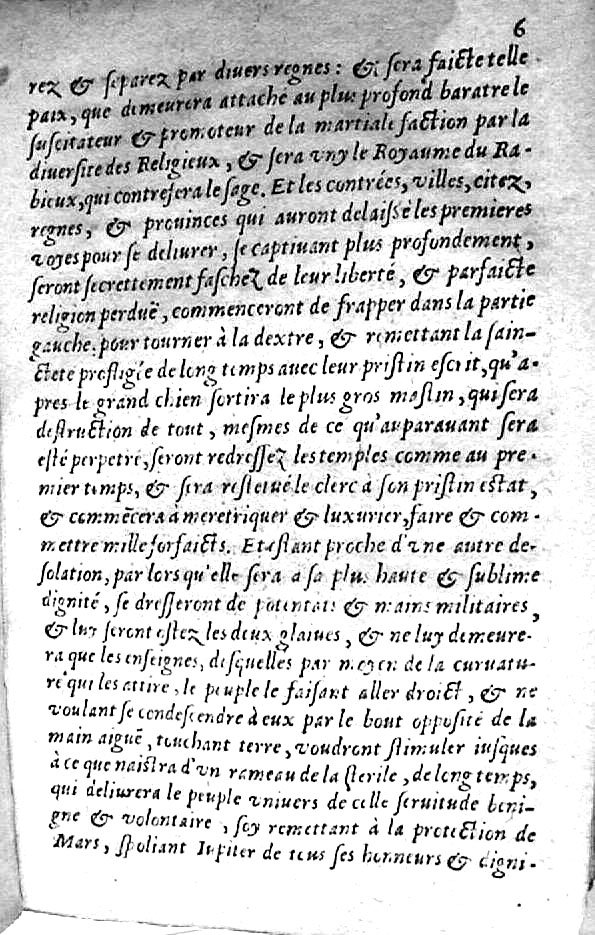 6
rez & separez par divers regnes: & sera faicte telle
paix, que demeurera attaché au plus profond baratre le
suscitateur & promoteur de la martiale faction par la
diversite des Religieux, & sera vny le Royaume du Ra-
bieux, qui contrefera le sage. Et les contrées, villes, citez,
regnes, & prouinces qui auront delaissé les premieres
voyes pour se deliurer, se captiuant plus profondement,
seront secrettement faschez de leur liberté, & parfaicte
religion perduë, commenceront de frapper dans la partie
gauche, pour tourner à la dextre, & remettant la sain-
ctete profligée de long temps auec leur pristin escrit, qu'a-
pres le grand chien sortira le plus gros mastin, qui sera
destruction de tout, mesmes de ce qu'auparauant sera
esté perpetré, seront redressez les temples comme au pre-
mier temps, & sera restetué le clerc à son pristin estat,
& commēcera à meretriquer & luxurier, faire & com-
mettre mille forfaicts. Et estant proche d'vne autre de-
solation, par lors qu'elle sera a sa plus haute & sublime
dignité, se dresseront de potentats & mains militaires,
& luy seront ostez les deux glaiues, & ne luy demeure-
ra que les enseignes, desquelles par moyen de la curuatu-
re qui les attire, le peuple le faisant aller droict, & ne
voulant se condescendre à eux par le bout opposité de la
main aiguë, touchant terre, voudront stimuler iusques
à ce que naistra d'vn rameau de la sterile, de long temps,
qui deliurera le peuple vniuers de celle seruitude beni-
gne & volontaire, soy remettant à la protection de
Mars, spoliant Iupiter de tous ses honneurs & digni-